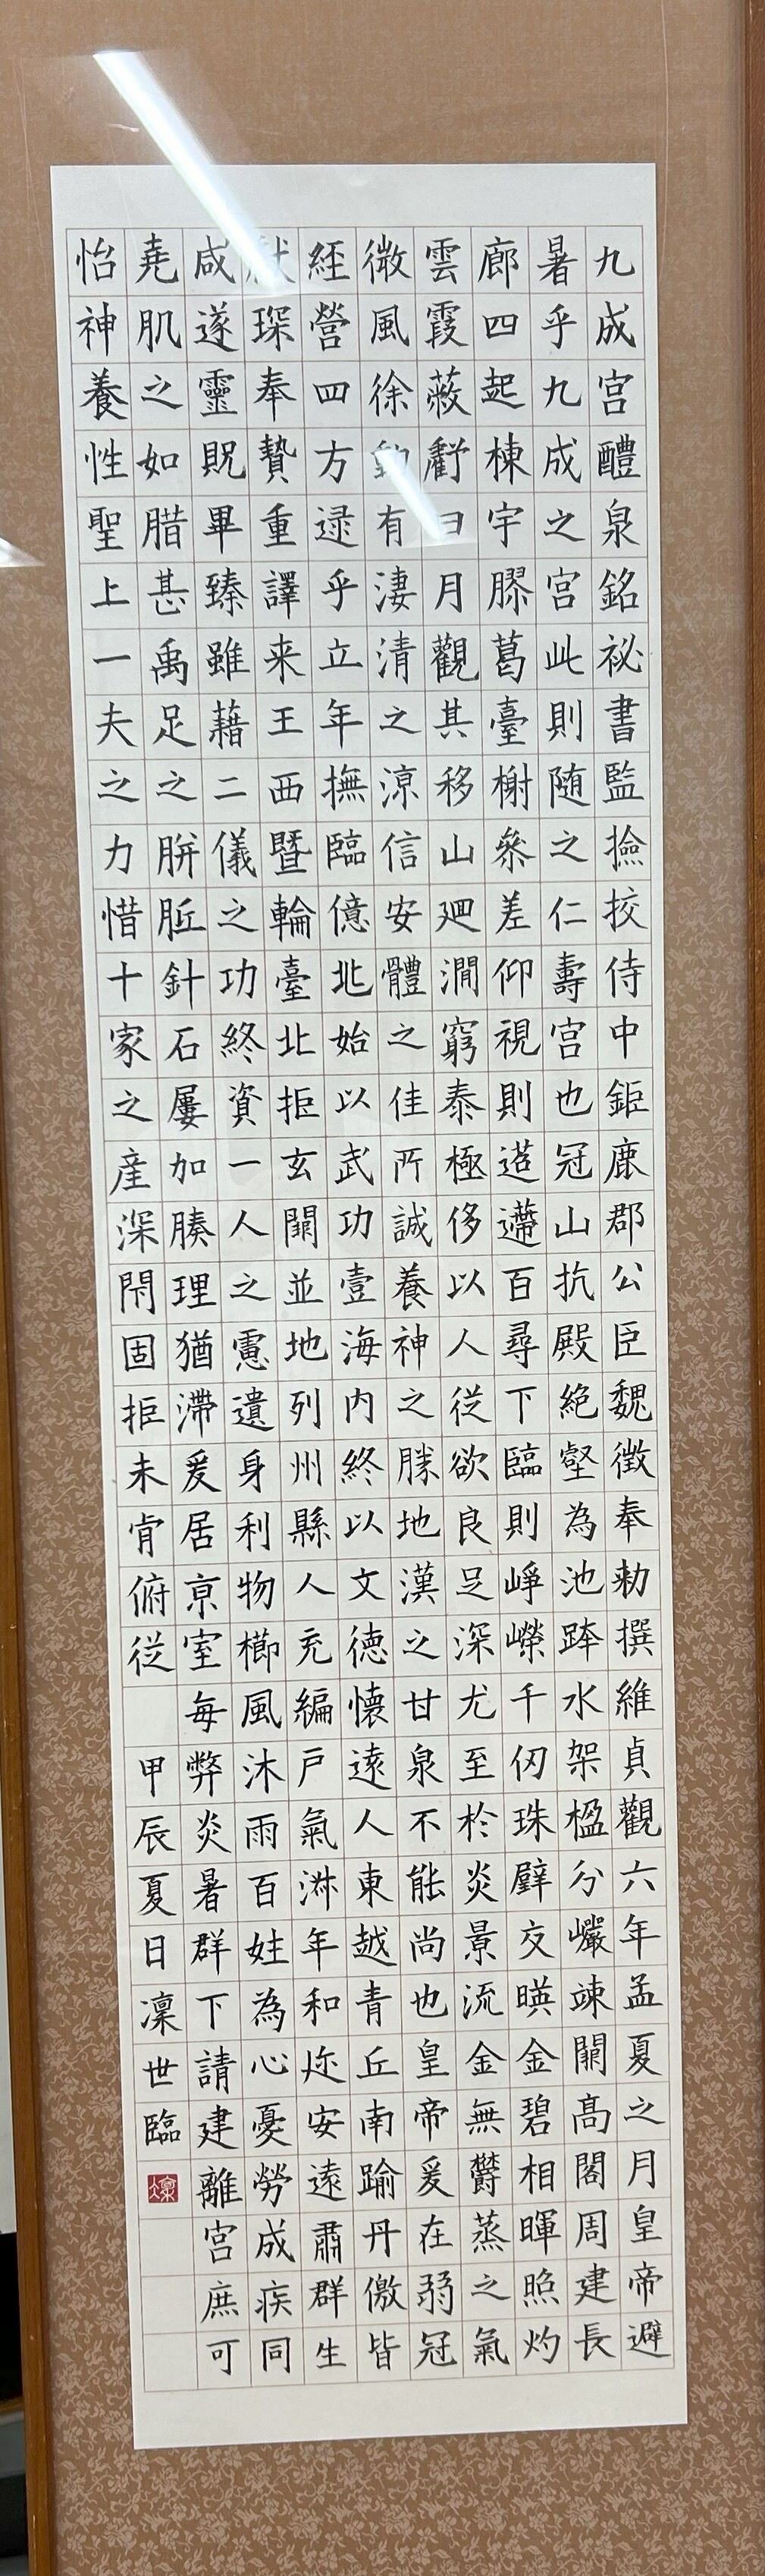 九成宮醴泉銘祕書監撿挍侍中鉅鹿郡公臣魏徵奉勅撰維貞觀六年孟夏之月皇帝避
暑乎九成之宮此則随之仁壽宮也冠山抗殿絕壑為池跨水架楹分巖竦闕高閣周建長
廊四起棟宇膠葛臺榭參差仰視則迢遰百尋下臨則崢嶸千仞珠璧交暎金碧相暉照灼
雲霞蔽虧日月觀其移山廻澗窮泰極侈以人従欲良足深尤至於炎景流金無欝蒸之氣
微風徐動有淒清之涼信安體之佳所誠養神之勝地漢之甘泉不能尚也皇帝爰在弱冠
經營四方逮乎立年撫臨億兆始以武功壹海内終以文德懷遠人東越青丘南踰丹儌皆
獻琛奉贄重譯来王西暨輪臺北拒玄闕並地列州縣人充編戶氣淋年和迩安遠肅群生
咸遂靈貺畢臻雖藉二儀之功終資一人之慮遺身利物櫛風沐雨百姓為心憂勞成疾同
堯肌之如腊甚禹足之胼胝針石屢加腠理猶滯爰居京室每弊炎暑群下請建離宮庶可
怡神養性聖上一夫之力惜十家之産深閇固拒未肯俯従 甲辰夏日凜世臨